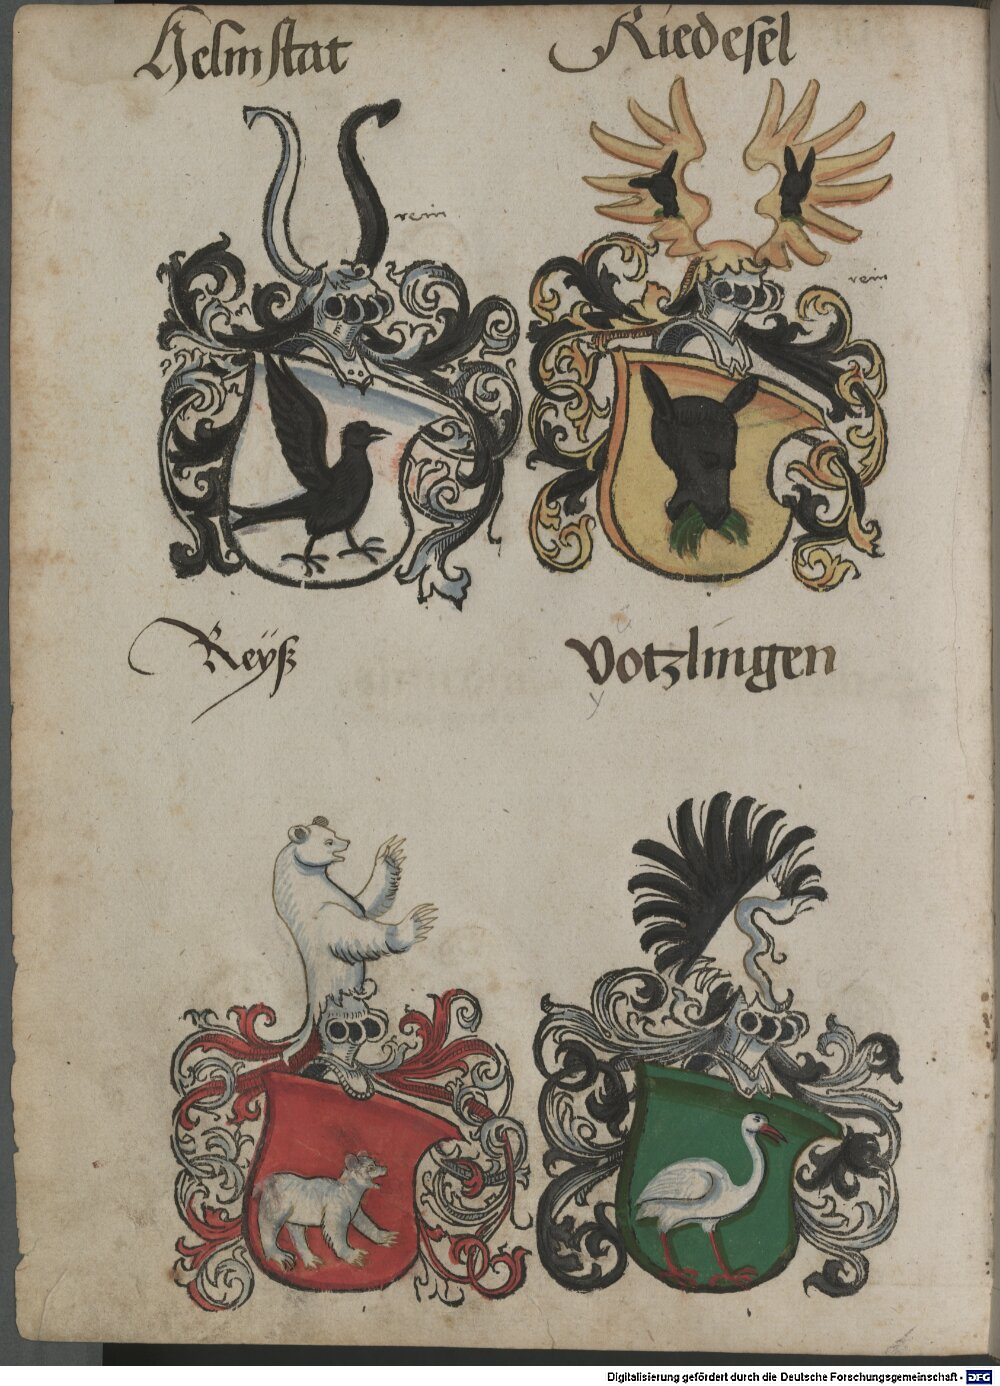 Helmstat
Riedesel
rein
rein
Reÿß
Votzlingen
y
Digitalisierung gefördert durch die Deutsche Forschungsgemeinschaft - DFG